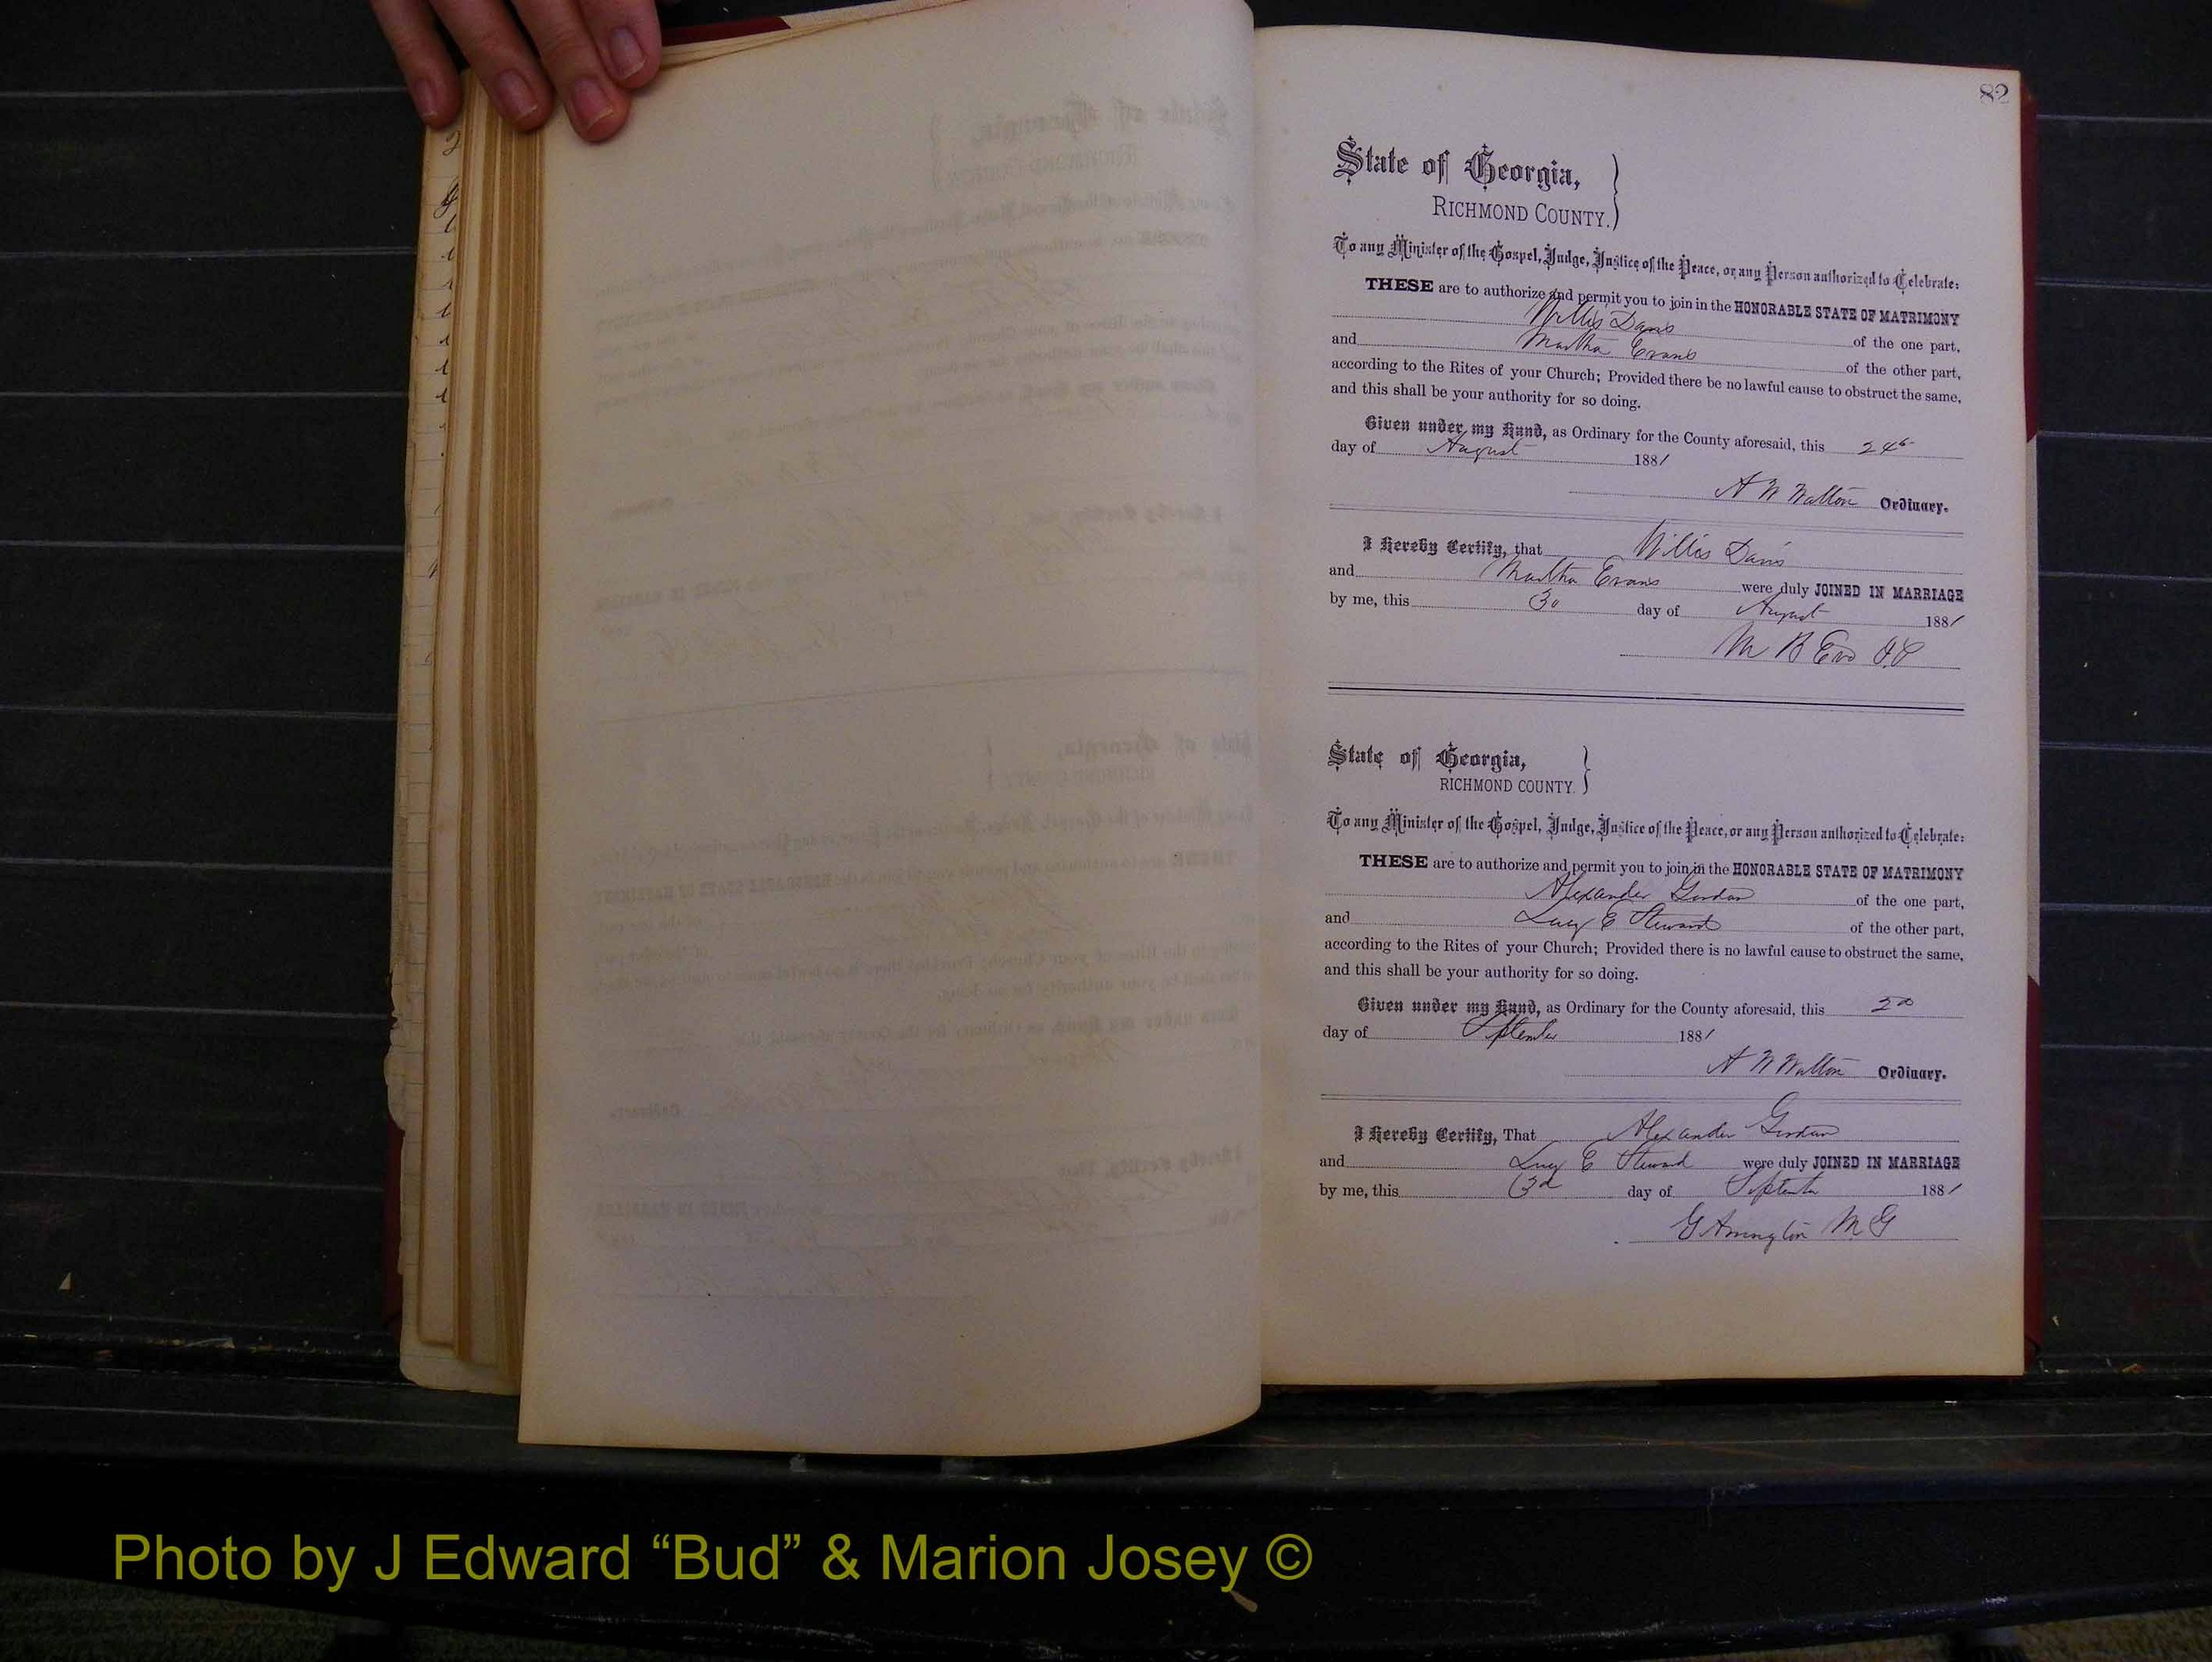 82
State of Georgia,
RICHMOND COUNTY.
To any Minister of the Gospel, Judge, Justice of the Peace, or any Person authorized to Celebrate:
THESE are to authorize and permit you to join in the HONORABLE STATE OF MATRIMONY
Willis Davis of the one part,
and Martha Evans of the other part,
according to the Rites of your Church; Provided there be no lawful cause to obstruct the same,
and this shall be your authority for so doing.
Given under my Hand, as Ordinary for the County aforesaid, this
day of August 1881
A W Walton Ordinary.
I Hereby Certify, that Willis Davis
and Martha Evans were duly JOINED IN MARRIAGE
by me, this 30 day of August 1881
M B
State of Georgia,
RICHMOND COUNTY.
To any Minister of the Gospel, Judge, Justice of the Peace, or any Person authorized to Celebrate:
THESE are to authorize and permit you to join in the HONORABLE STATE OF MATRIMONY
Alexander Gordon of the one part,
and Lucy E Steward of the other part,
according to the Rites of your Church; Provided there is no lawful cause to obstruct the same,
and this shall be your authority for so doing.
Given under my Hand, as Ordinary for the County aforesaid, this
day of September 1881
A W Walton Ordinary.
I Hereby Certify, That Alexander Gordon
and Lucy E Steward were duly JOINED IN MARRIAGE
by me, this 3d day of September 1881
G Arrington M G
Photo by J Edward “Bud” & Marion Josey ©